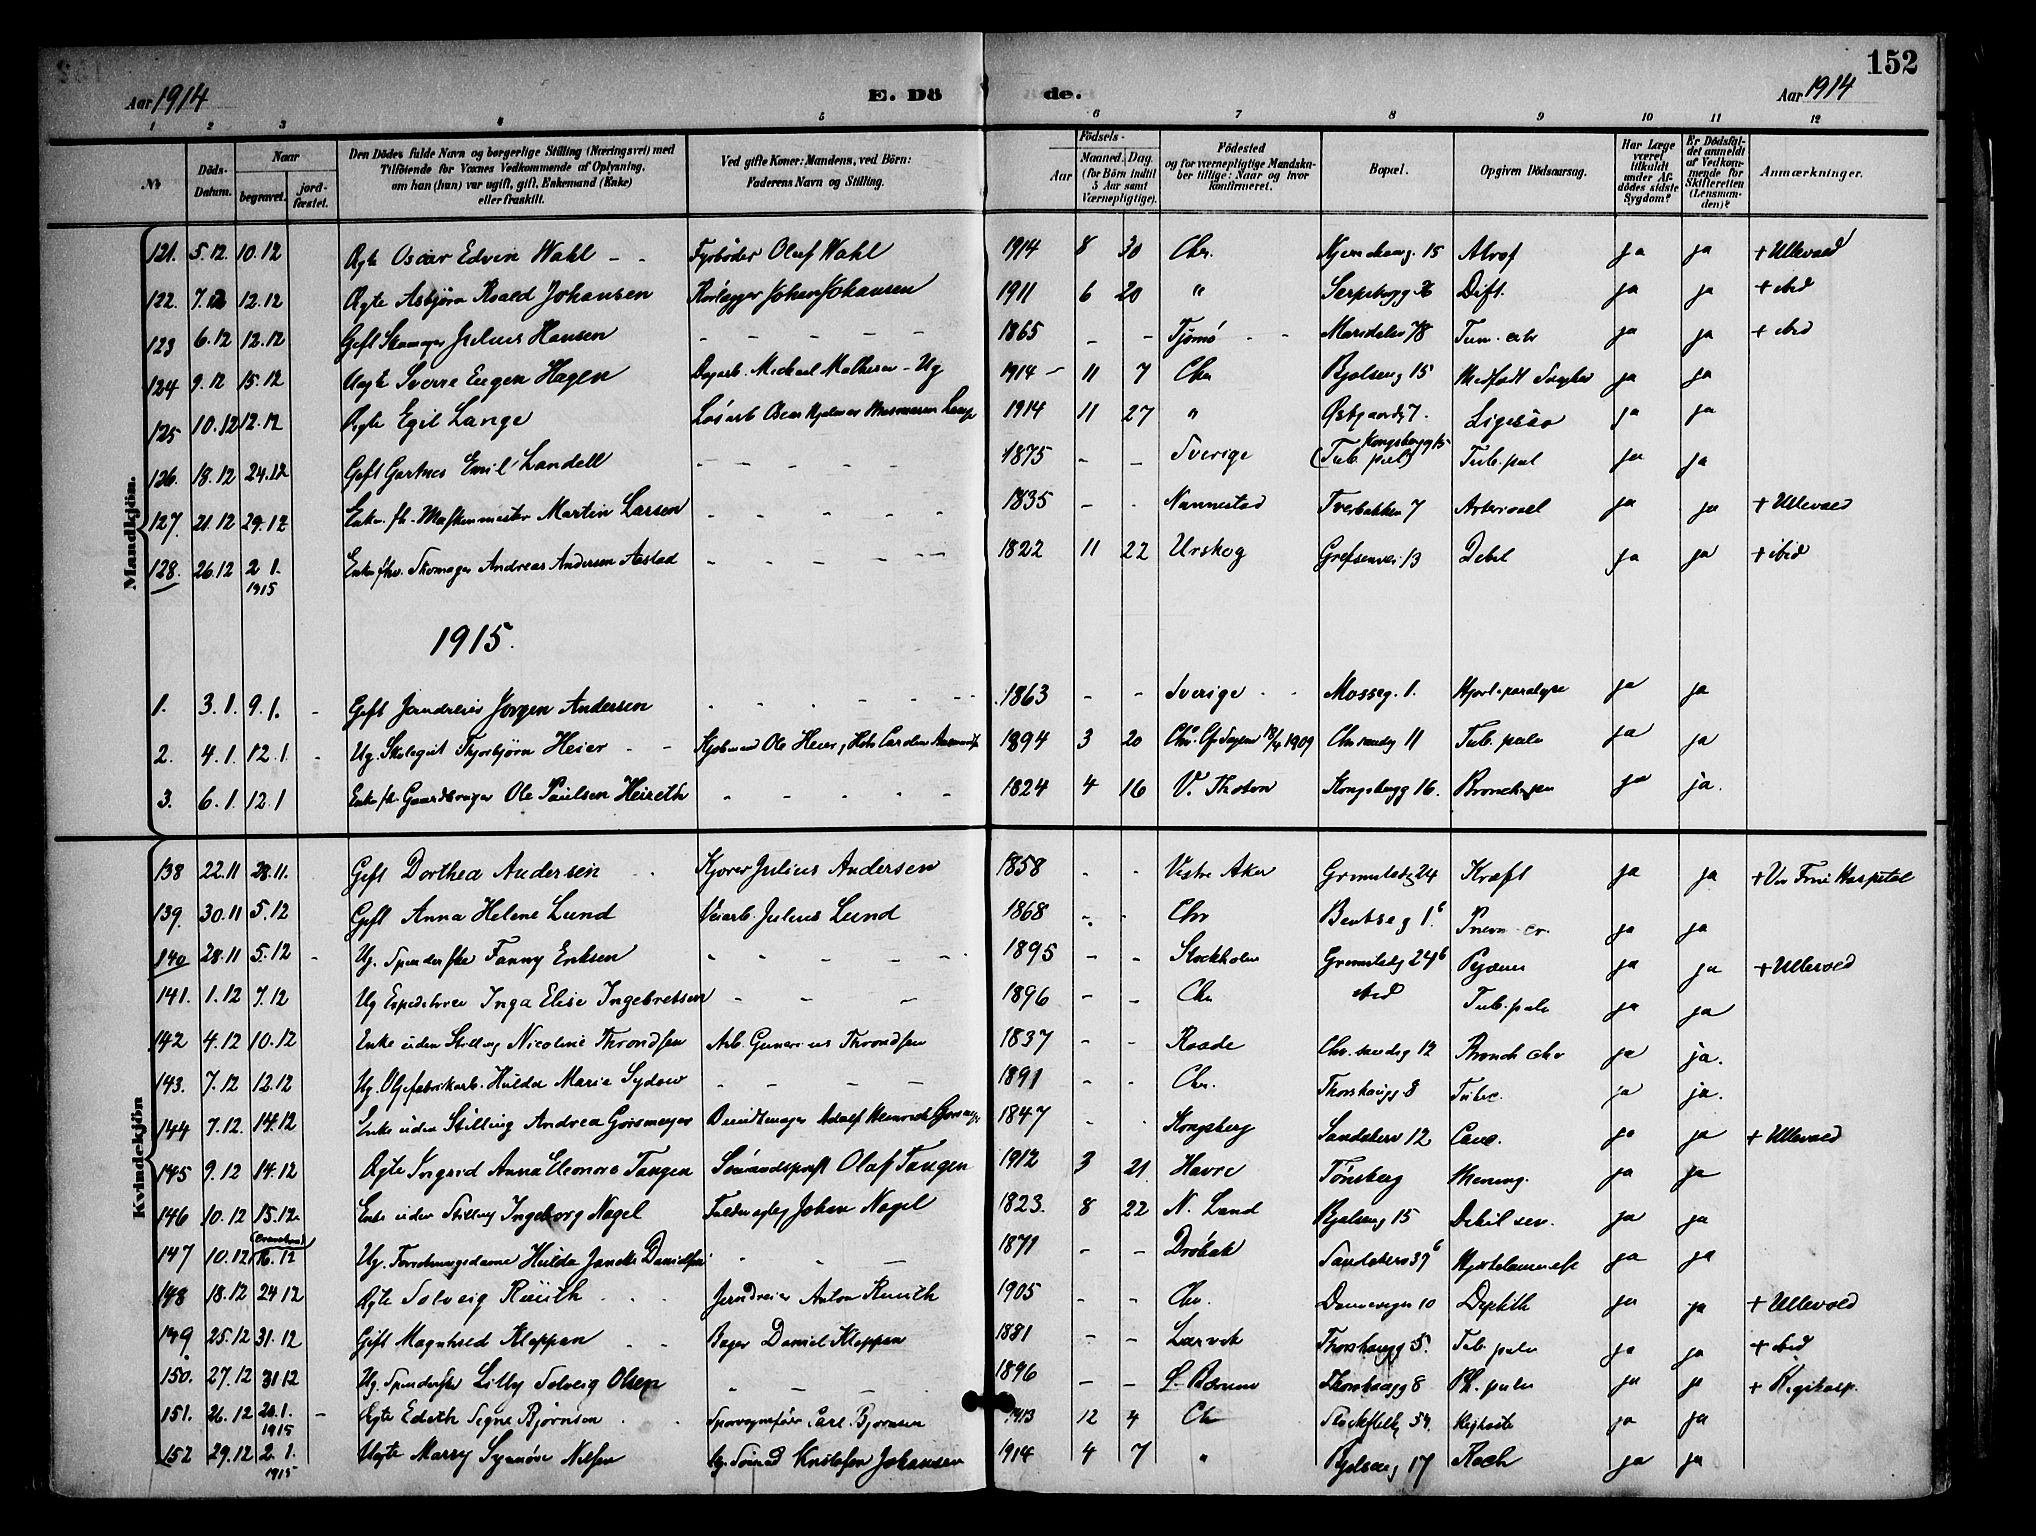 152
Aar 1914 E. Döde. Aar 1914
1 2 3 4 5 6 7 8 9 10 11 12
№ Döds-Datum. Naar begravet. jord-fæstet. Den Dödes fulde Navn og borgerlige Stilling (Næringsvei) med Tilföiende for Voxnes Vedkommende af Oplysning, om han (hun) var ugift, gift, Enkemand (Enke) eller fraskilt. Ved gifte Koner: Mandens, ved Börn: Faderens Navn og Stilling. Födsels- Aar Maaned. Dag. (for Börn indtil 5 Aar samt Værnepligtige). Födested og for værnepligtige Mandskaber tillige: Naar og hvor konfirmeret. Bopæl. Opgiven Dödsaarsag. Har Læge været tilkaldt under Afdödes sidste Sygdom? Er Dödsfaldet anmeldt af Vedkommende for Skifteretten (Lensmanden)? Anmærkninger.
Mandkjön.
121. 5.12. 10.12 Ægte Oscar Edvin Wahl - - Fyrbøder Olaf Wahl 1914 8 30 Chr. 15 ja ja + Ullevaal
122. 7.12 12.12 Ægte Asbjørn Roald Johansen Rørlægger Johan Johansen 1911 6 20 " Dift. ja ja + ibid
123 6.12 12.12 Gift Skomager Julius Hansen - - - - - 1865 - - Tjømø - - ja ja + ibid
124 9.12 15.12 Uægte Sverre Eugen Hagen Dagarb. Michael - Ug 1914 - 11 7 Chr Bjølseng 15 Medfødt ja ja
125 10.12 12.12 Ægte Egil Lange Løsarb Oscar Hjalmar 1914 11 27 " 7. ja ja
126. 18.12 24.12 Gift Gartner Emil Landell - - - - - 1875 - - Sverige Kongsbergg 15 (Tub. pul) Tub. pul ja ja
127. 21.12 29.12 Enkem. fh. Maskinmester Martin Larsen - - - - 1835 - - Nannestad Tverbakken 7 ja ja + Ullevaal
128. 26.12 2.1. 1915 Enkem fhv. Skomager Andreas Andersen Aastad - - - - 1822 11 22 Urskog Grefsenvei 13 Debil ja ja + ibid
1915.
1. 3.1. 9.1. - Gift Jerndreier Jørgen Andersen - - - - - 1863 - - Sverige - - Mosseg. 1. Hjerteparalyse ja ja
2. 4.1. 12.1 - Ug. Skolegut Thorbjørn Heier - - Kjøbmand Ole Heier, 1894 3 20 18/4 1909 11 Tub. pulm ja ja
3. 6.1. 12.1 Enkem. fh. Gaardbruger Ole Paulsen Heireth - - - - - 1824 4 16 V. Thoten Kongsbergg 16. ja ja.
Kvindekjön
138 22.11 28.11. Gift Dorthea Andersen - - Kjører Julius Andersen 1858 - - Vestre Aker Grimstadg 24 Kræft ja ja + Vor Frue Hospital
139. 30.11 5.12 Gift Anna Helene Lund Veiarb. Julius Lund 1868 - - Chr Bentseg 16. Pneum. cr. ja ja
140 28.11 5.12 - Ug. Spinderske Fanny Eriksen - - - - - 1895 - - Stockholm Grimstadg 24b ja ja + Ullevold
141. 1.12 7.12 Ug Expeditrice Inga Elise Ingebretsen - - - 1896 - - Chr ibid Tub. pulm ja ja
142 4.12 10.12 Enke uden Stilling Nicoline Throndsen Arb. Gunerius Throndsen 1837 - - Raade Chr.sandsg 12 Bronch chr ja ja.
143. 7.12 12.12 Ug. Hulda Marie Sydow - - - - 1891 - - Chr. Thorshaugg 8 Tuberc. ja ja.
144 7.12. 14.12 Enke uden Stilling Andrea Gørsmeyer Bundtmager Adolf Heinrich Gørsmeyer 1847 - - Kongsberg Sandakerv 12 Canc. ja ja + Ullevaal
145 9.12 14.12 Ægte Ingrid Anna Eleonore Tangen Olaf Tangen 1912 3 21 Havre Tønsberg Mening. ja ja
146 10.12 15.12. Enke uden Stilling Ingeborg Nagel Johan Nagel 1823. 8 22 N. Land Bjølseng 15 Debil sen. ja ja
147 10.12 16.12 Ug. Forretningsdame Hulda Danielsen - - - 1871 - - Drøbak Sandakerv 39b Hjertelammelse ja ja
148 18.12 24.12 Ægte Solveig Ruuth - - - Jerndreier Anton Ruuth 1905 - - Chr. 10 Diphth ja ja + Ullevold
149 25.12 31.12 Gift Magnhild Kleppan - - Bager Daniel Kleppan 1881 - - Larvik Thorshaugg 5. Tub. pulm ja ja + ibid
150. 27.12 31.12 Ug. Spinderske Lilly Solveig Olsen - - - - 1896 - - Ø. Bærum Thorshaugg 8 Ph. pulm ja ja + Rigshosp.
151. 26.12 20.1. 1915 - Ægte Edith Signe Bjørnsen - - Sporvognsfører Carl Bjørnsen 1913 12 4 Chr ja ja
152 29.12 2.1. 1915 Uægte Marry Synnøve Nilsen Ug. Sømand Kristofer Johansen 1914 4 7 " Bjølseng 17 ja ja